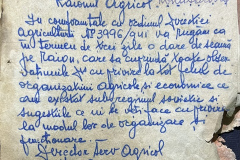 Raionul Agricol
In conformitate cu ordinul Direcției
agriculturii Nº 3996/941 vă rugăm ca
în termen de trei zile o dare de seamă
pe Raion, care să cuprindă toate obser-
vațiunile cu privire la tot felul de
organizațiuni agricole și economice ce
au existat sub regimul sovietic și
sugestiile ce ni le puteți face cu privire
la modul lor de organizare și
funcționare.
Director Serv Agricol